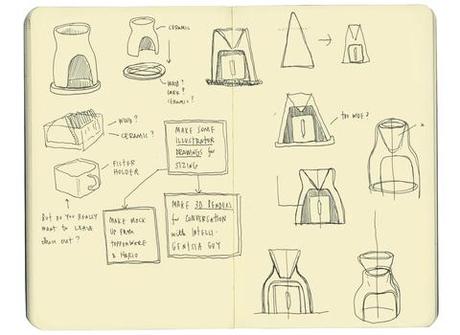 CERAMIC
WOOD?
CORK?
CERAMIC?
WOOD?
CERAMIC?
FILTER
HOLDER
BUT DO YOU REALLY
WANT TO LEAVE
them out?
MAKE SOME
ILLUSTRATOR
DRAWINGS for
SIZING
MAKE MOCK
UP FROM
TUPPERWARE
& HARIO
MAKE 3D RENDERS
for CONVERSATION
with INTELLI-
GENTSIA GUY
TOO WIDE?